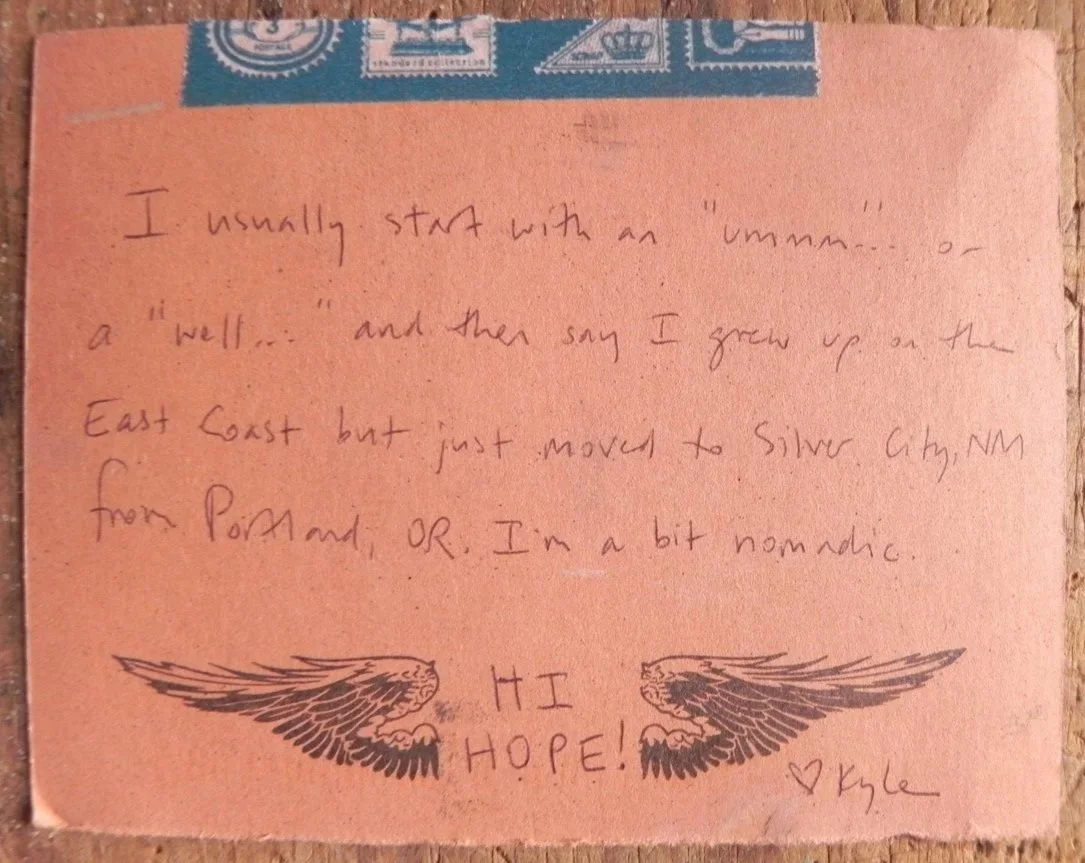 3
POSTAGE
standard collection
I usually start with an "ummm..." or
a "well..." and then say I grew up on the
East Coast but just moved to Silver City, NM
from Portland, OR. I'm a bit nomadic.
HI
HOPE!
♡ Kyle